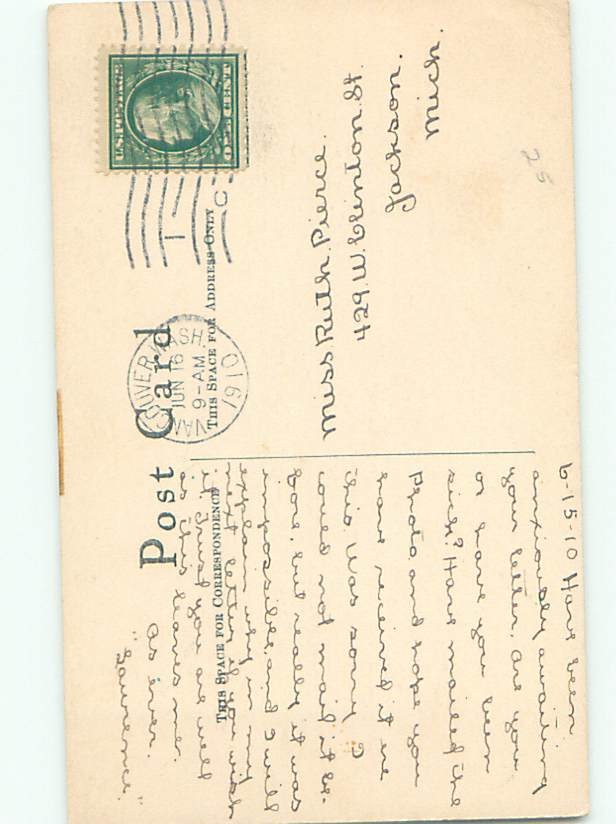 Post Card
THIS SPACE FOR CORRESPONDENCE
THIS SPACE FOR ADDRESS ONLY
U.S. POSTAGE
ONE CENT
VANCOUVER WASH.
JUN 16
9-AM
1910
Miss Ruth Pierce.
429 W. Clinton St.
Jackson.
Mich.
25
6-15-10 Have been
anxiously awaiting
your letter. Are you
or have you been
sick? Have mailed the
Photo and hope you
have received it ere
this. Was sorry I
could not mail it be-
fore, but really it was
impossible, and I will
explain why in my
next letter if you wish
it. Trust you are well
as this leaves me.
As ever.
"Lawrence."